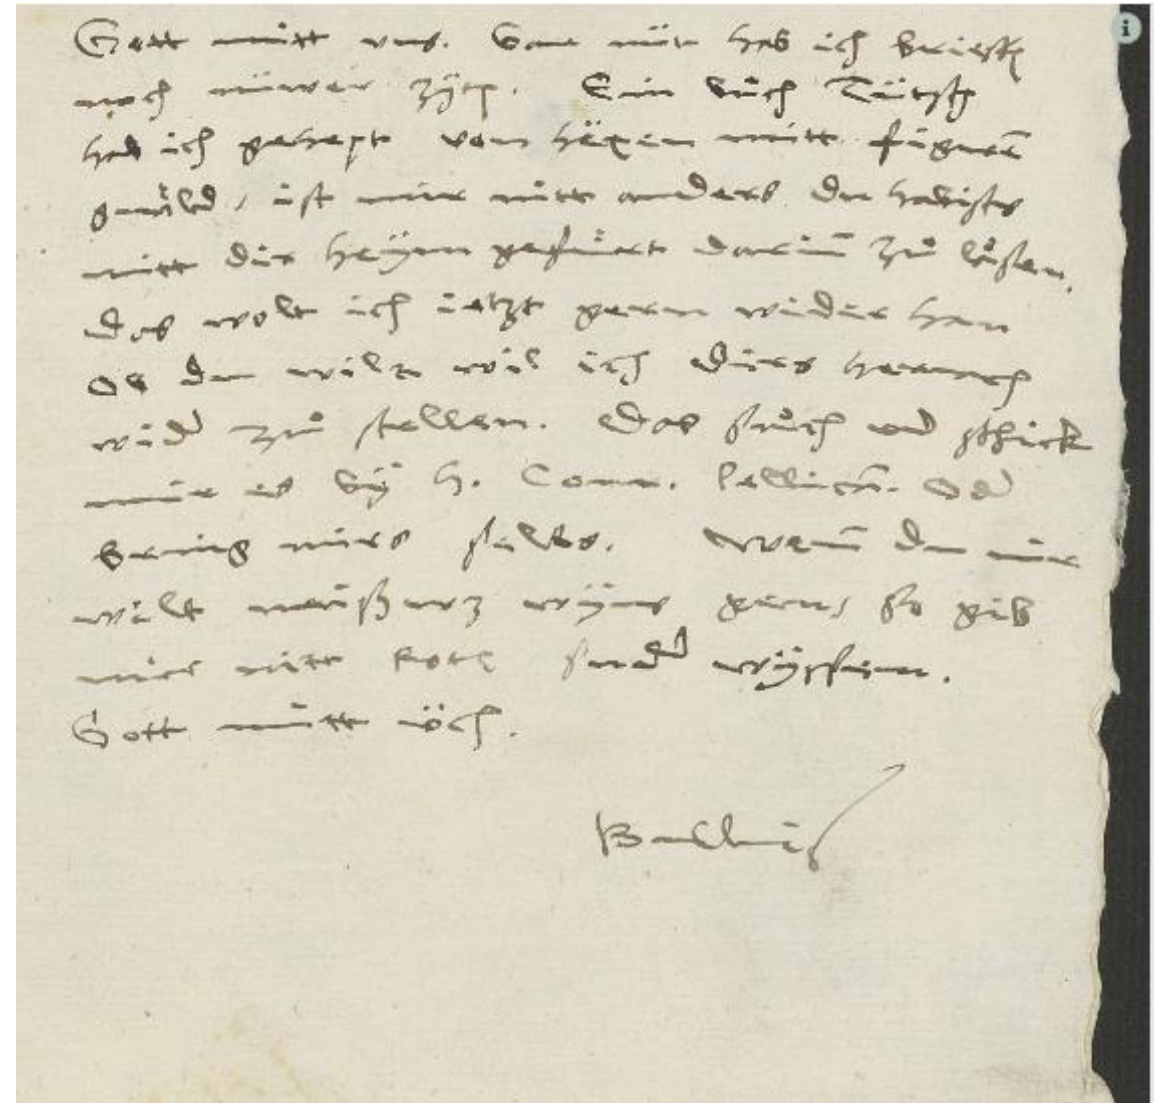 Gott mitt uns. Gar nüt hab ich brieff
noch nüwer zyt. Ein bůch Tütsch
hab ich gehept vom hëxen mitt figurē
gmåld, ist mir nitt anders du habists
mitt dir heÿm gefürt darin̄ zů låsen.
Das wolt ich ietzt gern wider han
ob du wilt wil ich dirs hernach
wider zů stellen. Das sůch und schick
mir es bÿ h. Conr. Pellican. Oder
bring mirs selbs. Wen̄ du mir
wilt wÿns gen, so gib
mir nitt rott sunder wÿssen.
Gott mitt üch.
Bulling